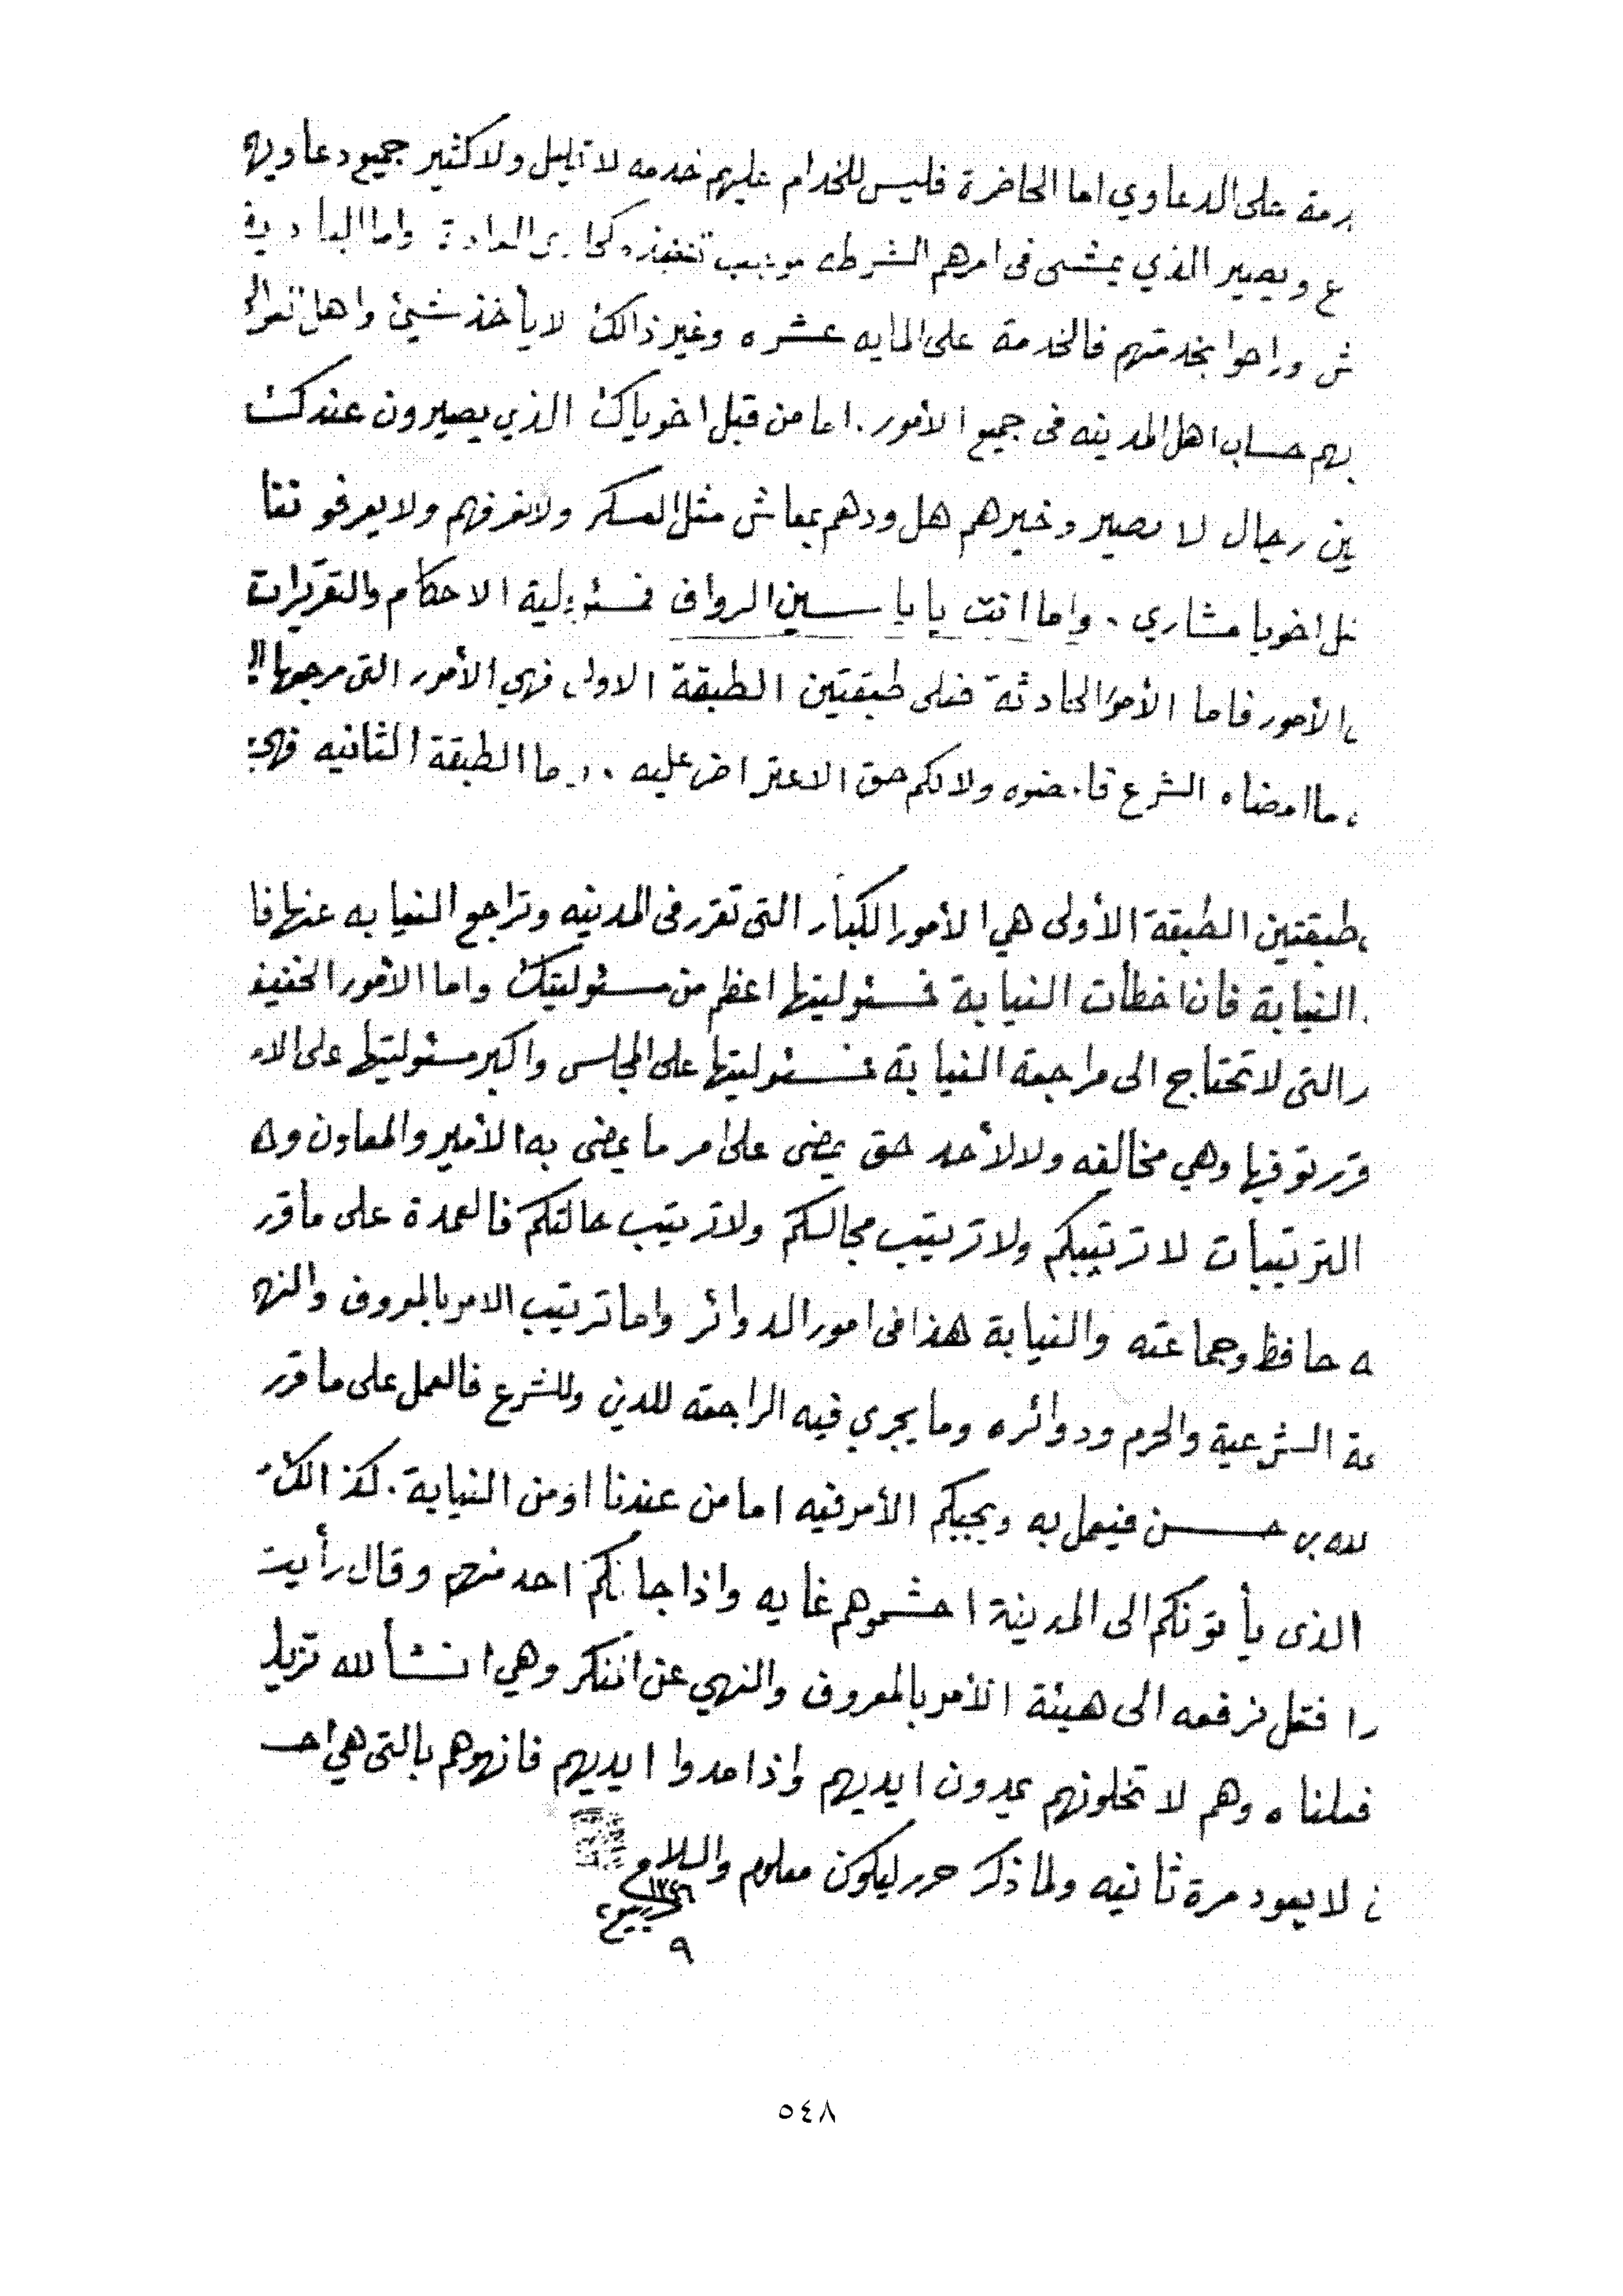 رمة على الدعاوي اما الحاضرة فليس للخدام عليهم خدمه لا قليل ولا كثير جميع دعاويه
ع ويصير الذي يمشى فى امرهم الشرطه موجب تنفيذه كجاري العادة واما البادية
ش وراحوا بخدمتهم فالخدمة على المايه عشره وغير ذالك لا يأخذ شيئ واهل العوالي
بهم حساب اهل المدينه فى جميع الأمور. اما من قبل اخوياك الذي يصيرون عندك
ين رجال لا يصير وخيرهم هل ودهم بمعاش مثل العسكر ولا نعرفهم ولا يعرفوننا
اخويا مشاري . واما انت يا ياسين الرواف فمسئولية الاحكام والتقريرات
الأمور فاما الأمور الحادثة فعلى طبقتين الطبقة الاولى فهي الأمور التى مرجعها
ما امضاه الشرع فامضوه ولا لكم حق الاعتراض عليه . واما الطبقة الثانيه فهي
طبقتين الطبقة الأولى هي الأمور الكبار التى تقرر فى المدينه وتراجع النيابه عنها فا
النيابة فان اخطأت النيابة فمسئوليتها اعظم من مسئوليتك واما الأمور الخفيف
ر التى لا تحتاج الى مراجعة النيابة فمسئوليتها على المجلس واكبر مسئوليتها على الا
قررتو فيها وهي مخالفه ولا لأحد حق يمضى على امر ما يمضى به الأمير والمعاون وه
الترتيبات لا ترتيبكم ولا ترتيب مجالسكم ولا ترتيب حالتكم فالعمدة على ما قرر
ه حافظ وجماعته والنيابة هذا فى امور الدوائر واما ترتيب الامر بالمعروف والنه
عة الشرعية والحرم ودوائره وما يجري فيه الراجعه للدين وللشرع فالعمل على ما قرر
لله بن حسن فيعمل به ويجيكم الأمر فيه اما من عندنا او من النيابة. كذالك
الذى يأتونكم الى المدينة احشموهم غايه واذا جائكم احد منهم وقال رأيت
را فقل نرفعه الى هيئة الأمر بالمعروف والنهي عن المنكر وهي انشألله تزيل
فعلناه وهم لا تخلونهم يمدون ايديهم واذا مدوا ايديهم فانهوهم بالتى هي احسـ
ن لا يعود مرة ثانيه ولما ذكر حرر ليكون معلوم والسلام
١٣٤٦
ربيع٢
٩
٥٤٨